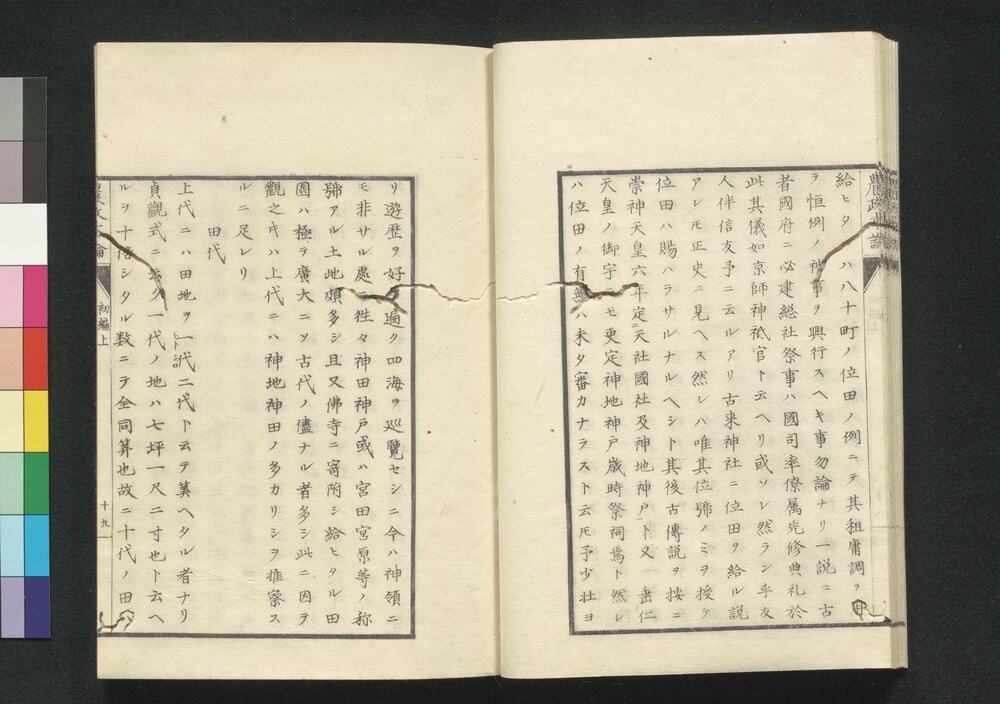 給ヒタハ八十町ノ位田ノ例ニテ其租庸調ヲ
テ恒例ノ神事ヲ興行スヘキ事勿論ナリ一説ニ古
者國府ニ必建総社祭事ハ國司率僚属先修典礼於
此其儀如京師神祇官ト云ヘリ或ソレ然ラン乎友
人伴信友予ニ云ルアリ古来神社ニ位田ヲ給ル説
アレ𪜈正史ニ見ヘス然レハ唯其位號ノミヲ授ケ
位田ハ賜ハラサルナルヘシト其後古傳説ヲ按ニ
崇神天皇六年定天社國社及神地神戸ト又垂仁
天皇ノ御宇ニモ更定神地神戸歳時祭祠焉ト然レ
ハ位田ノ有無ハ未タ審カナラスト云𪜈予少壮ヨ
リ遊歴ヲ好遍ク四海ヲ巡覧セシニ今ハ神領ニ
モ非サル處ニ徃々神田神戸或ハ宮田宮原等ノ称
號アル土地頗多シ且又佛寺ニ寄附シ給ヒタル田
園ハ極テ廣大ニシテ古代ノ儘ナル者多シ此ニ因テ
觀之キハ上代ニハ神地神田ノ多カリシヲ推察ス
ルニ足レリ
田代
上代ニハ田地ヲ一代二代ト云テ筭ヘタル者ナリ
貞觀式ニ云ク一代ノ地ハ七坪一尺二寸也ト云ヘ
ルヲ十倍シタル数ニテ全同筭也故ニ十代ノ田ハ
初編上
十九